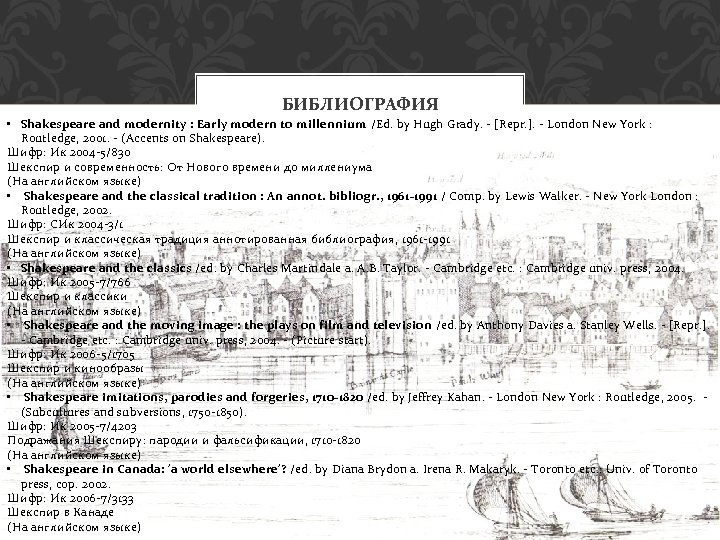 БИБЛИОГРАФИЯ
• Shakespeare and modernity : Early modern to millennium /Ed. by Hugh Grady. - [Repr.]. - London New York :
Routledge, 2001. - (Accents on Shakespeare).
Шифр: Ик 2004-5/830
Шекспир и современность: От Нового времени до миллениума
(На английском языке)
• Shakespeare and the classical tradition : An annot. bibliogr., 1961-1991 / Comp. by Lewis Walker. - New York London :
Routledge, 2002.
Шифр: СИк 2004-3/1
Шекспир и классическая традиция аннотированная библиография, 1961-1991
(На английском языке)
• Shakespeare and the classics /ed. by Charles Martindale a. A.B. Taylor. - Cambridge etc. : Cambridge univ. press, 2004.
Шифр: Ик 2005-7/766
Шекспир и классики
(На английском языке)
• Shakespeare and the moving image : the plays on film and television /ed. by Anthony Davies a. Stanley Wells. - [Repr.]
- Cambridge etc. : Cambridge univ. press, 2004. - (Picture start).
Шифр: Ик 2006-5/1705
Шекспир и кинообразы
(На английском языке)
• Shakespeare imitations, parodies and forgeries, 1710-1820 /ed. by Jeffrey Kahan. - London New York : Routledge, 2005. -
(Subcultures and subversions, 1750-1850).
Шифр: Ик 2005-7/4203
Подражания Шекспиру: пародии и фальсификации, 1710-1820
(На английском языке)
• Shakespeare in Canada: 'a world elsewhere'? /ed. by Diana Brydon a. Irena R. Makaryk. - Toronto etc.: Univ. of Toronto
press, cop. 2002.
Шифр: Ик 2006-7/3133
Шекспир в Канаде
(На английском языке)